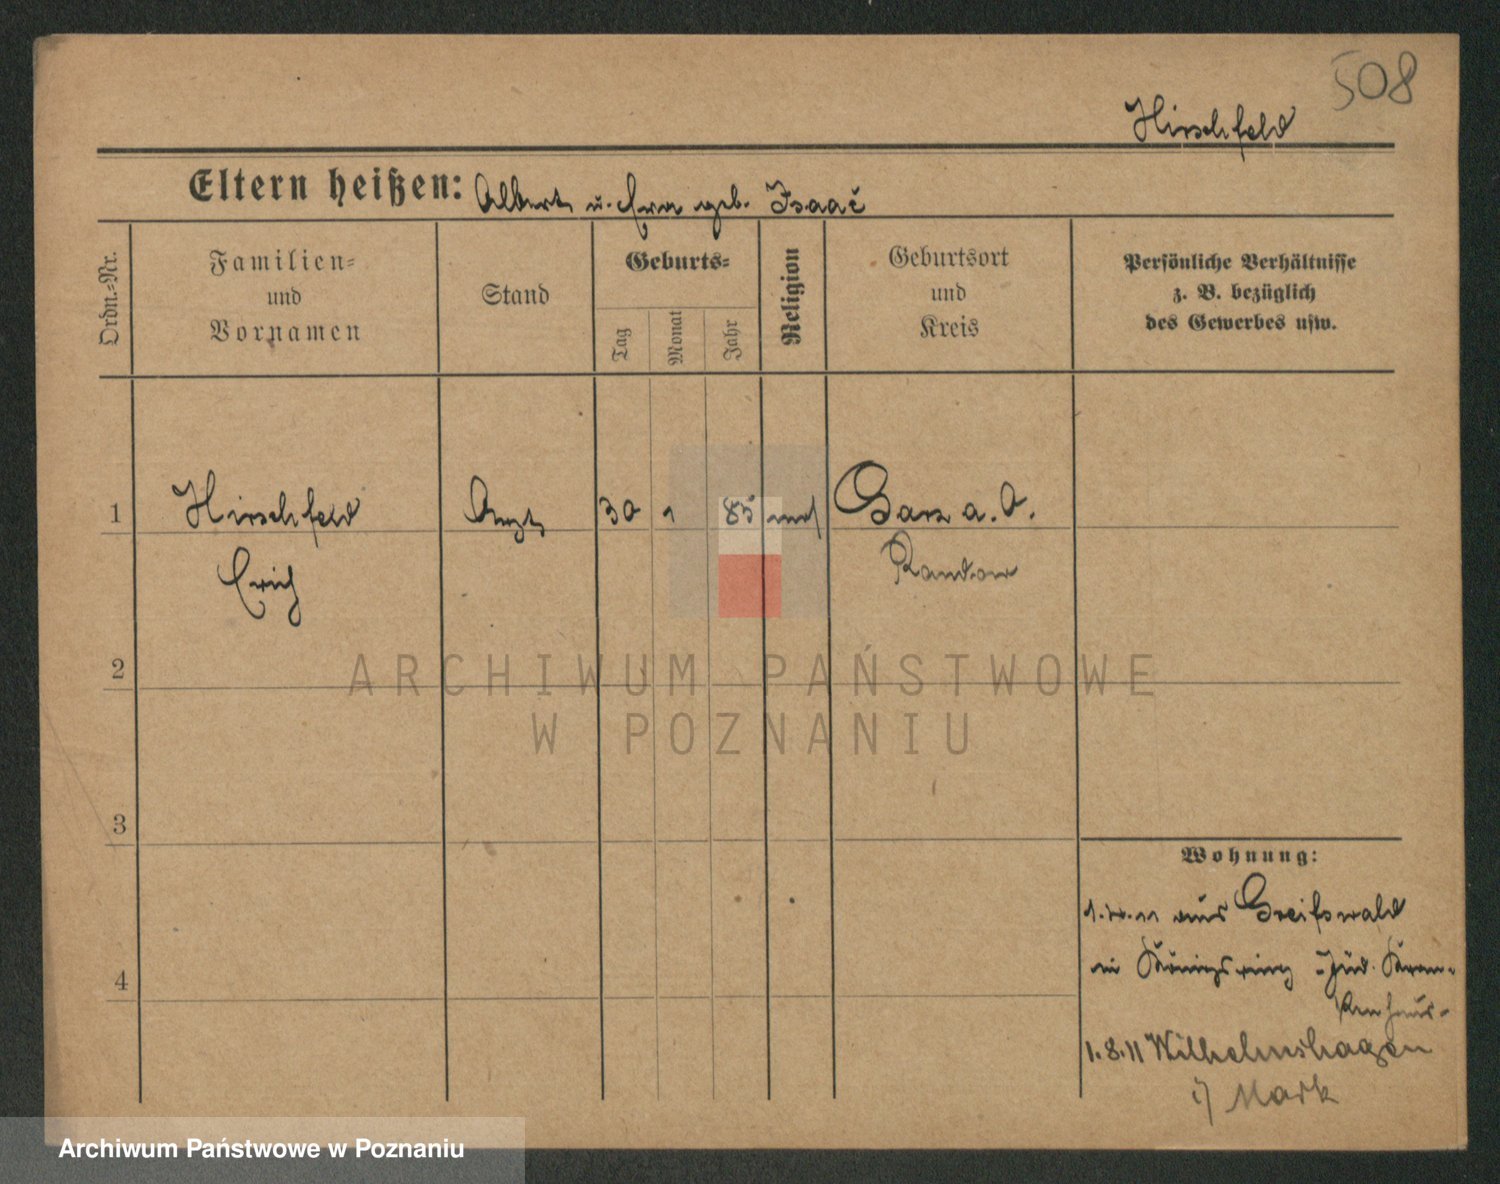 508
Hirschfeld
Eltern heißen: Albert u. Eva geb. Isaac
Ordn.-Nr.
Familien-
und
Vornamen
Stand
Geburts-
Tag
Monat
Jahr
Religion
Geburtsort
und
Kreis
Persönliche Verhältnisse
z. B. bezüglich
des Gewerbes usw.
1 Hirschfeld Arzt 30 1 85 mos Garz a. O.
Erich Randow
2
3
4
Wohnung:
aus Greifswald
Königsring Jüd. Kran-
kenhaus-
1.8.11 Wilhelmshagen
i/ Mark
ARCHIWUM PAŃSTWOWE
W POZNANIU
Archiwum Państwowe w Poznaniu